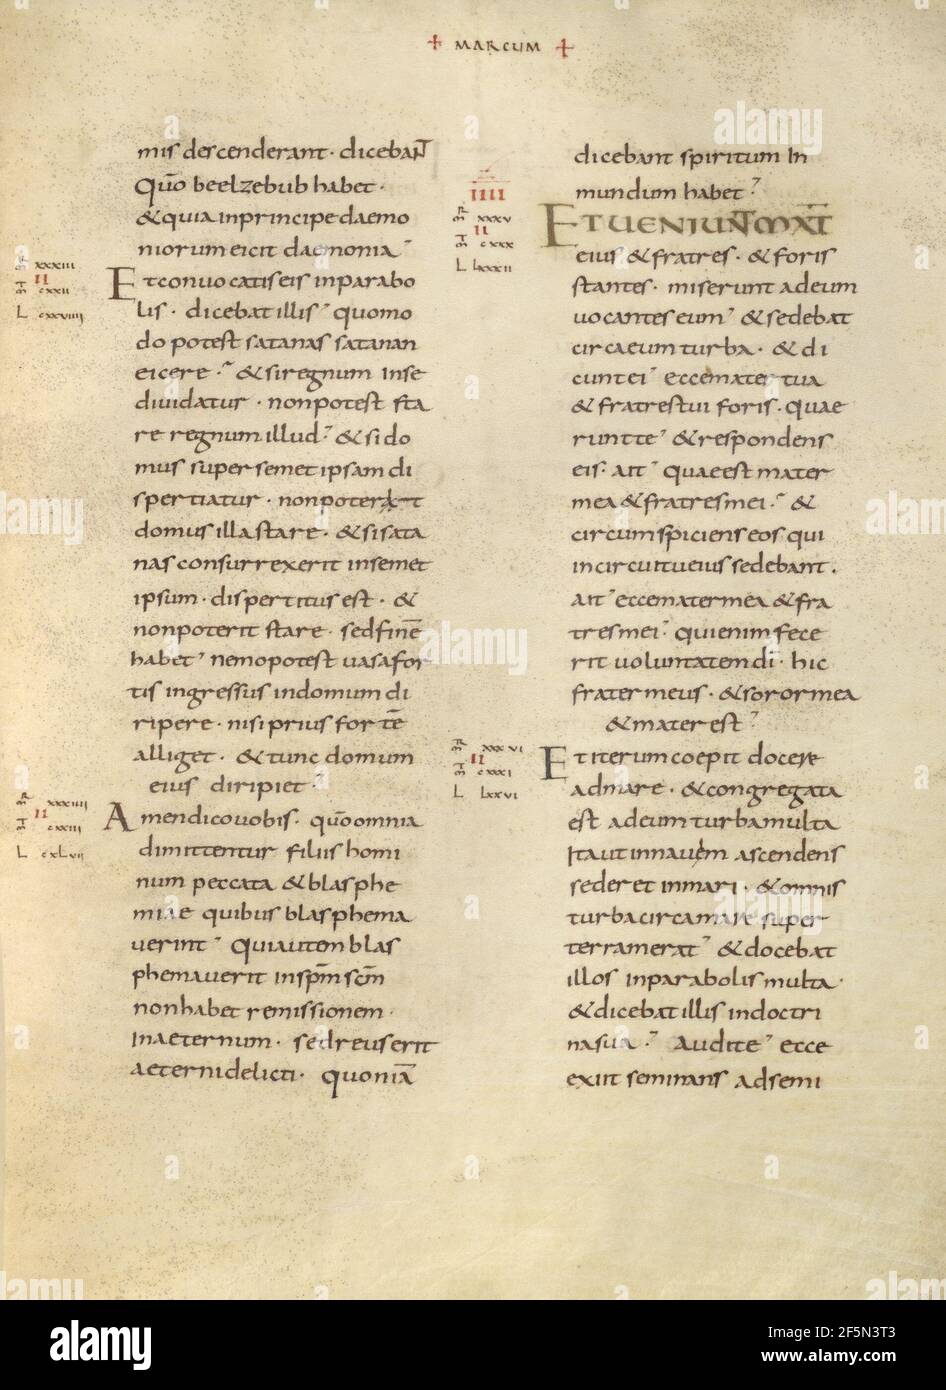 + MARCUM +
mis descenderant· dicebaNT
Quō beelzebub habet·
& quia inprincipe daemo
niorum eicit daemonia
R xxxiii
II
M cxxii
L cxxviiii
Et conuocatis eis inparabo
lis· dicebat illis quomo
do potest satanas satanan
eicere· & si regnum inse
diuidatur· non potest sta
re regnum illud· & si do
mus super semet ipsam di
spertiatur· non poterit
domus illa stare· & si sata
nas consurrexerit insemet
ipsum· dispertitus est· &
non poterit stare· sed finē
habet nemo potest uasa for
tis ingressus indomum di
ripere· nisi prius fortē
alliget· & tunc domum
eius diripiet·
R xxxiiii
II
M cxxiii
L cxLvii
Amen dico uobis· quō omnia
dimittentur filiis homi
num peccata & blasphe
miae quibus blasphema
uerint Qui autem blas
phemauerit in spm scm
non habet remissionem·
Inaeternum· sed reus erit
aeterni delicti· quoniā
dicebant spiritum In
mundum habet
IIII
R xxxv
II
M cxxx
L Lxxxii
ET UENIUNT MAT
eius & fratres· & foris
stantes· miserunt adeum
uocantes eum & sedebat
circa eum turba· & di
cunt ei ecce mater tua
& fratres tui foris· quae
runt te & respondens
eis· ait quae est mater
mea & fratres mei· &
circumspiciens eos qui
incircuitu eius sedebant·
ait ecce mater mea & fra
tres mei· qui enim fece
rit uoluntatem di· hic
frater meus· & soror mea
& mater est
R xxxvi
II
M cxxxi
L Lxxvi
Et iterum coepit docere
admare· & congregata
est adeum turba multa
Ita ut innauem ascendens
sederet inmari· & omnis
turba circa mare super
terram erat & docebat
illos inparabolis multa·
& dicebat illis indoctri
na sua· Audite ecce
exiit seminans adsemi
alamy
Image ID: 2F5N3T3
www.alamy.com